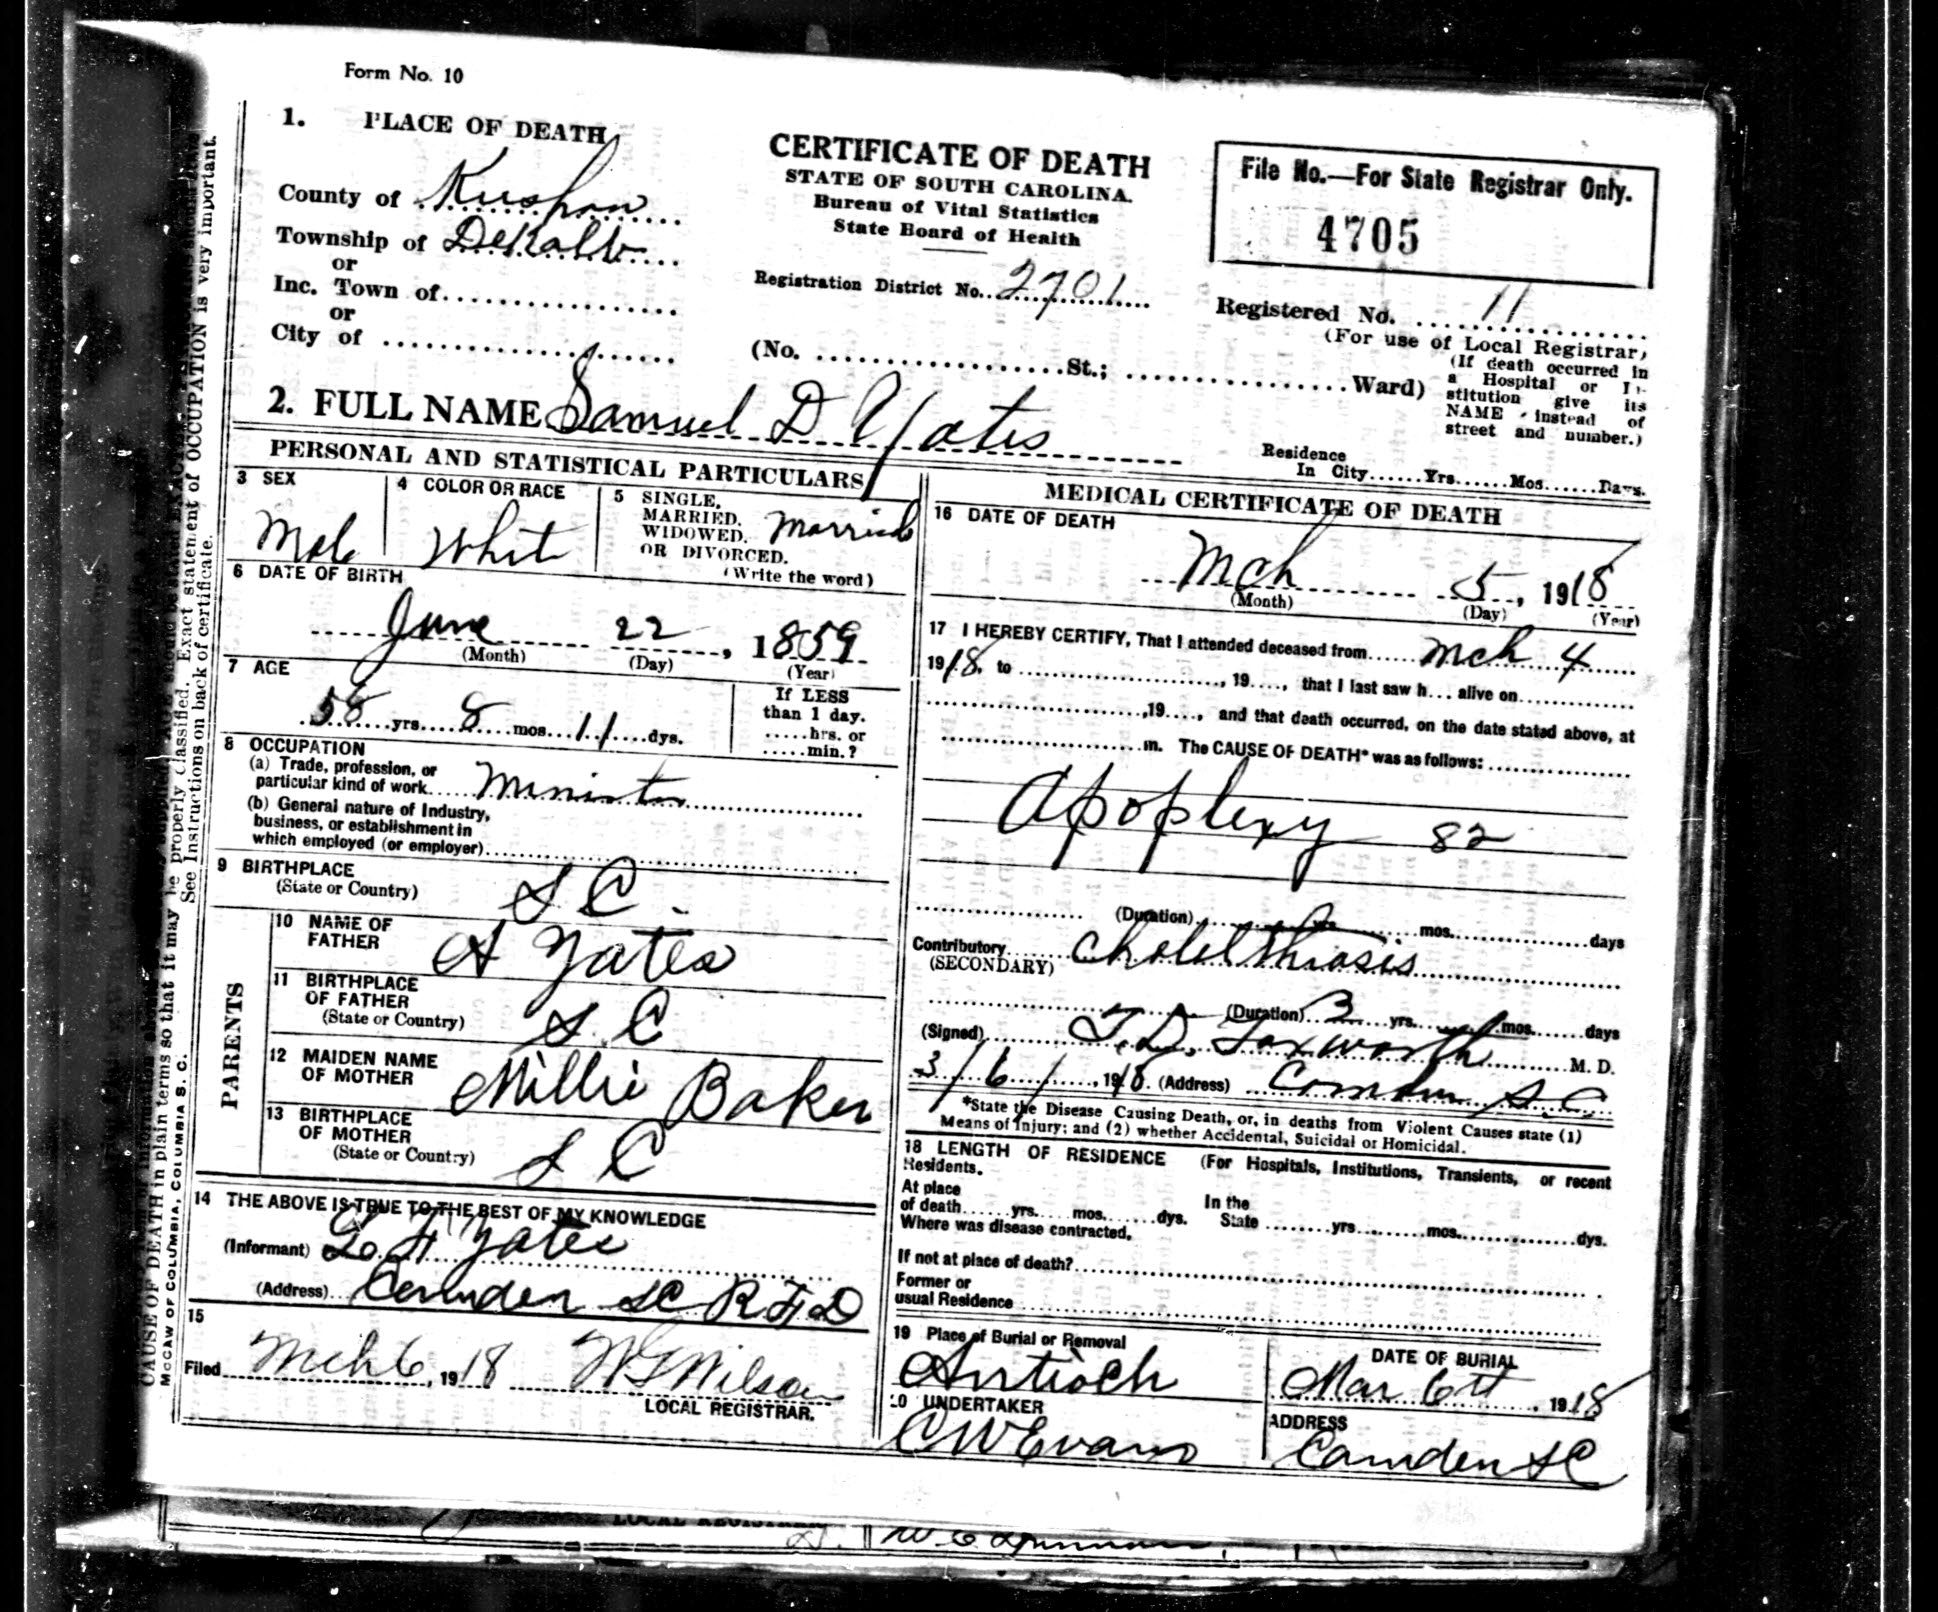 Form No. 10
1. PLACE OF DEATH
County of Kershaw
Township of DeKalb
or
Inc. Town of
or
City of
CERTIFICATE OF DEATH
STATE OF SOUTH CAROLINA.
Bureau of Vital Statistics
State Board of Health
Registration District No. 2701
File No.—For State Registrar Only.
4705
Registered No. 11
(For use of Local Registrar)
(No. St.; Ward)
(If death occurred in
a Hospital or In-
stitution give its
NAME instead of
street and number.)
2. FULL NAME Samuel D Yates
Residence
In City Yrs. Mos. Days.
PERSONAL AND STATISTICAL PARTICULARS
3 SEX
Male
4 COLOR OR RACE
White
5 SINGLE,
MARRIED,
WIDOWED,
OR DIVORCED.
(Write the word)
Married
6 DATE OF BIRTH
June 22, 1859
(Month) (Day) (Year)
7 AGE
58 yrs. 8 mos. 11 dys.
If LESS
than 1 day.
hrs. or
min.?
8 OCCUPATION
(a) Trade, profession, or
particular kind of work Minister
(b) General nature of Industry,
business, or establishment in
which employed (or employer)
9 BIRTHPLACE
(State or Country)
S C.
PARENTS
10 NAME OF
FATHER
A Yates
11 BIRTHPLACE
OF FATHER
(State or Country)
S. C
12 MAIDEN NAME
OF MOTHER
Millie Baker
13 BIRTHPLACE
OF MOTHER
(State or Country)
S C
14 THE ABOVE IS TRUE TO THE BEST OF MY KNOWLEDGE
(Informant) Yates
(Address) Camden SC R F D
15
Filed Mch 6, 1918 Wilson
LOCAL REGISTRAR.
MEDICAL CERTIFICATE OF DEATH
16 DATE OF DEATH
Mch 5, 1918
(Month) (Day) (Year)
17 I HEREBY CERTIFY, That I attended deceased from Mch 4
1918, to , 19 , that I last saw h alive on
,19 , and that death occurred, on the date stated above, at
m. The CAUSE OF DEATH* was as follows:
Apoplexy 82
(Duration) yrs. mos. days
Contributory
(SECONDARY)
Cholelthiasis
(Duration) 3 yrs. mos. days
(Signed) M. D.
3/6/, 1918 (Address) Camden S.C
*State the Disease Causing Death, or, in deaths from Violent Causes state (1)
Means of Injury; and (2) whether Accidental, Suicidal or Homicidal.
18 LENGTH OF RESIDENCE (For Hospitals, Institutions, Transients, or recent
Residents.
At place
of death yrs. mos. dys.
In the
State yrs. mos. dys.
Where was disease contracted,
If not at place of death?
Former or
usual Residence
19 Place of Burial or Removal
Antioch
DATE OF BURIAL
Mar 6th, 1918
20 UNDERTAKER
C W Evans
ADDRESS
Camden SC
CAUSE OF DEATH in plain terms so that it may be properly classified. Exact statement of OCCUPATION is very important.
See Instructions on back of certificate.
McCAW OF COLUMBIA, COLUMBIA S. C.